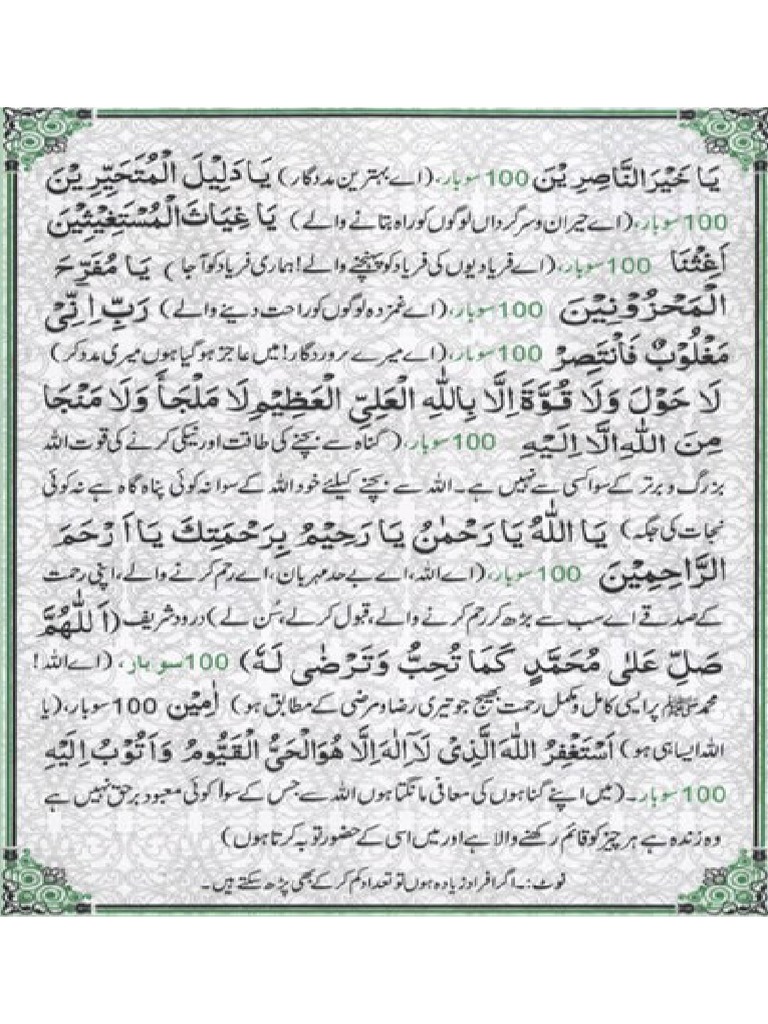 يَا خَيْرَ النَّاصِرِيْنَ 100 سوبار، (اے بہترین مددگار) يَا دَلِيْلَ الْمُتَحَيِّرِيْنَ
100 سوبار، (اے حیران و سرگرداں لوگوں کو راہ بتانے والے) يَا غِيَاثَ الْمُسْتَغِيْثِيْنَ
اَغِثْنَا 100 سوبار، (اے فریادیوں کی فریاد کو پہنچنے والے! ہماری فریاد کو آجا) يَا مُفَرِّحَ
الْمَحْزُوْنِيْنَ 100 سوبار، (اے غمزدہ لوگوں کو راحت دینے والے) رَبِّ اِنِّىْ
مَغْلُوْبٌ فَانْتَصِرْ 100 سوبار، (اے میرے پروردگار! میں عاجز ہو گیا ہوں میری مدد کر)
لَا حَوْلَ وَلَا قُوَّةَ اِلَّا بِاللّٰهِ الْعَلِىِّ الْعَظِيْمِ لَا مَلْجَأَ وَلَا مَنْجَا
مِنَ اللّٰهِ اِلَّا اِلَيْهِ 100 سوبار، (گناہ سے بچنے کی طاقت اور نیکی کرنے کی قوت اللہ
بزرگ و برتر کے سوا کسی سے نہیں ہے۔ اللہ سے بچنے کیلئے خود اللہ کے سوا نہ کوئی پناہ گاہ ہے نہ کوئی
نجات کی جگہ) يَا اَللّٰهُ يَا رَحْمٰنُ يَا رَحِيْمُ بِرَحْمَتِكَ يَا اَرْحَمَ
الرَّاحِمِيْنَ 100 سوبار، (اے اللہ، اے بے حد مہربان، اے رحم کرنے والے، اپنی رحمت
کے صدقے اے سب سے بڑھ کر رحم کرنے والے، قبول کرلے، سُن لے) درود شریف (اَللّٰهُمَّ
صَلِّ عَلٰى مُحَمَّدٍ كَمَا تُحِبُّ وَتَرْضٰى لَهٗ) 100 سوبار، (اے اللہ!
محمد ﷺ پر ایسی کامل و مکمل رحمت بھیج جو تیری رضا و مرضی کے مطابق ہو) اٰمِيْن 100 سوبار، (یا
اللہ ایسا ہی ہو) اَسْتَغْفِرُ اللّٰهَ الَّذِىْ لَآ اِلٰهَ اِلَّا هُوَ الْحَىُّ الْقَيُّوْمُ وَاَتُوْبُ اِلَيْهِ
100 سوبار۔ (میں اپنے گناہوں کی معافی مانگتا ہوں اللہ سے جس کے سوا کوئی معبود برحق نہیں ہے
وہ زندہ ہے ہر چیز کو قائم رکھنے والا ہے اور میں اسی کے حضور توبہ کرتا ہوں)
نوٹ:۔ اگر افراد زیادہ ہوں تو تعداد کم کر کے بھی پڑھ سکتے ہیں۔